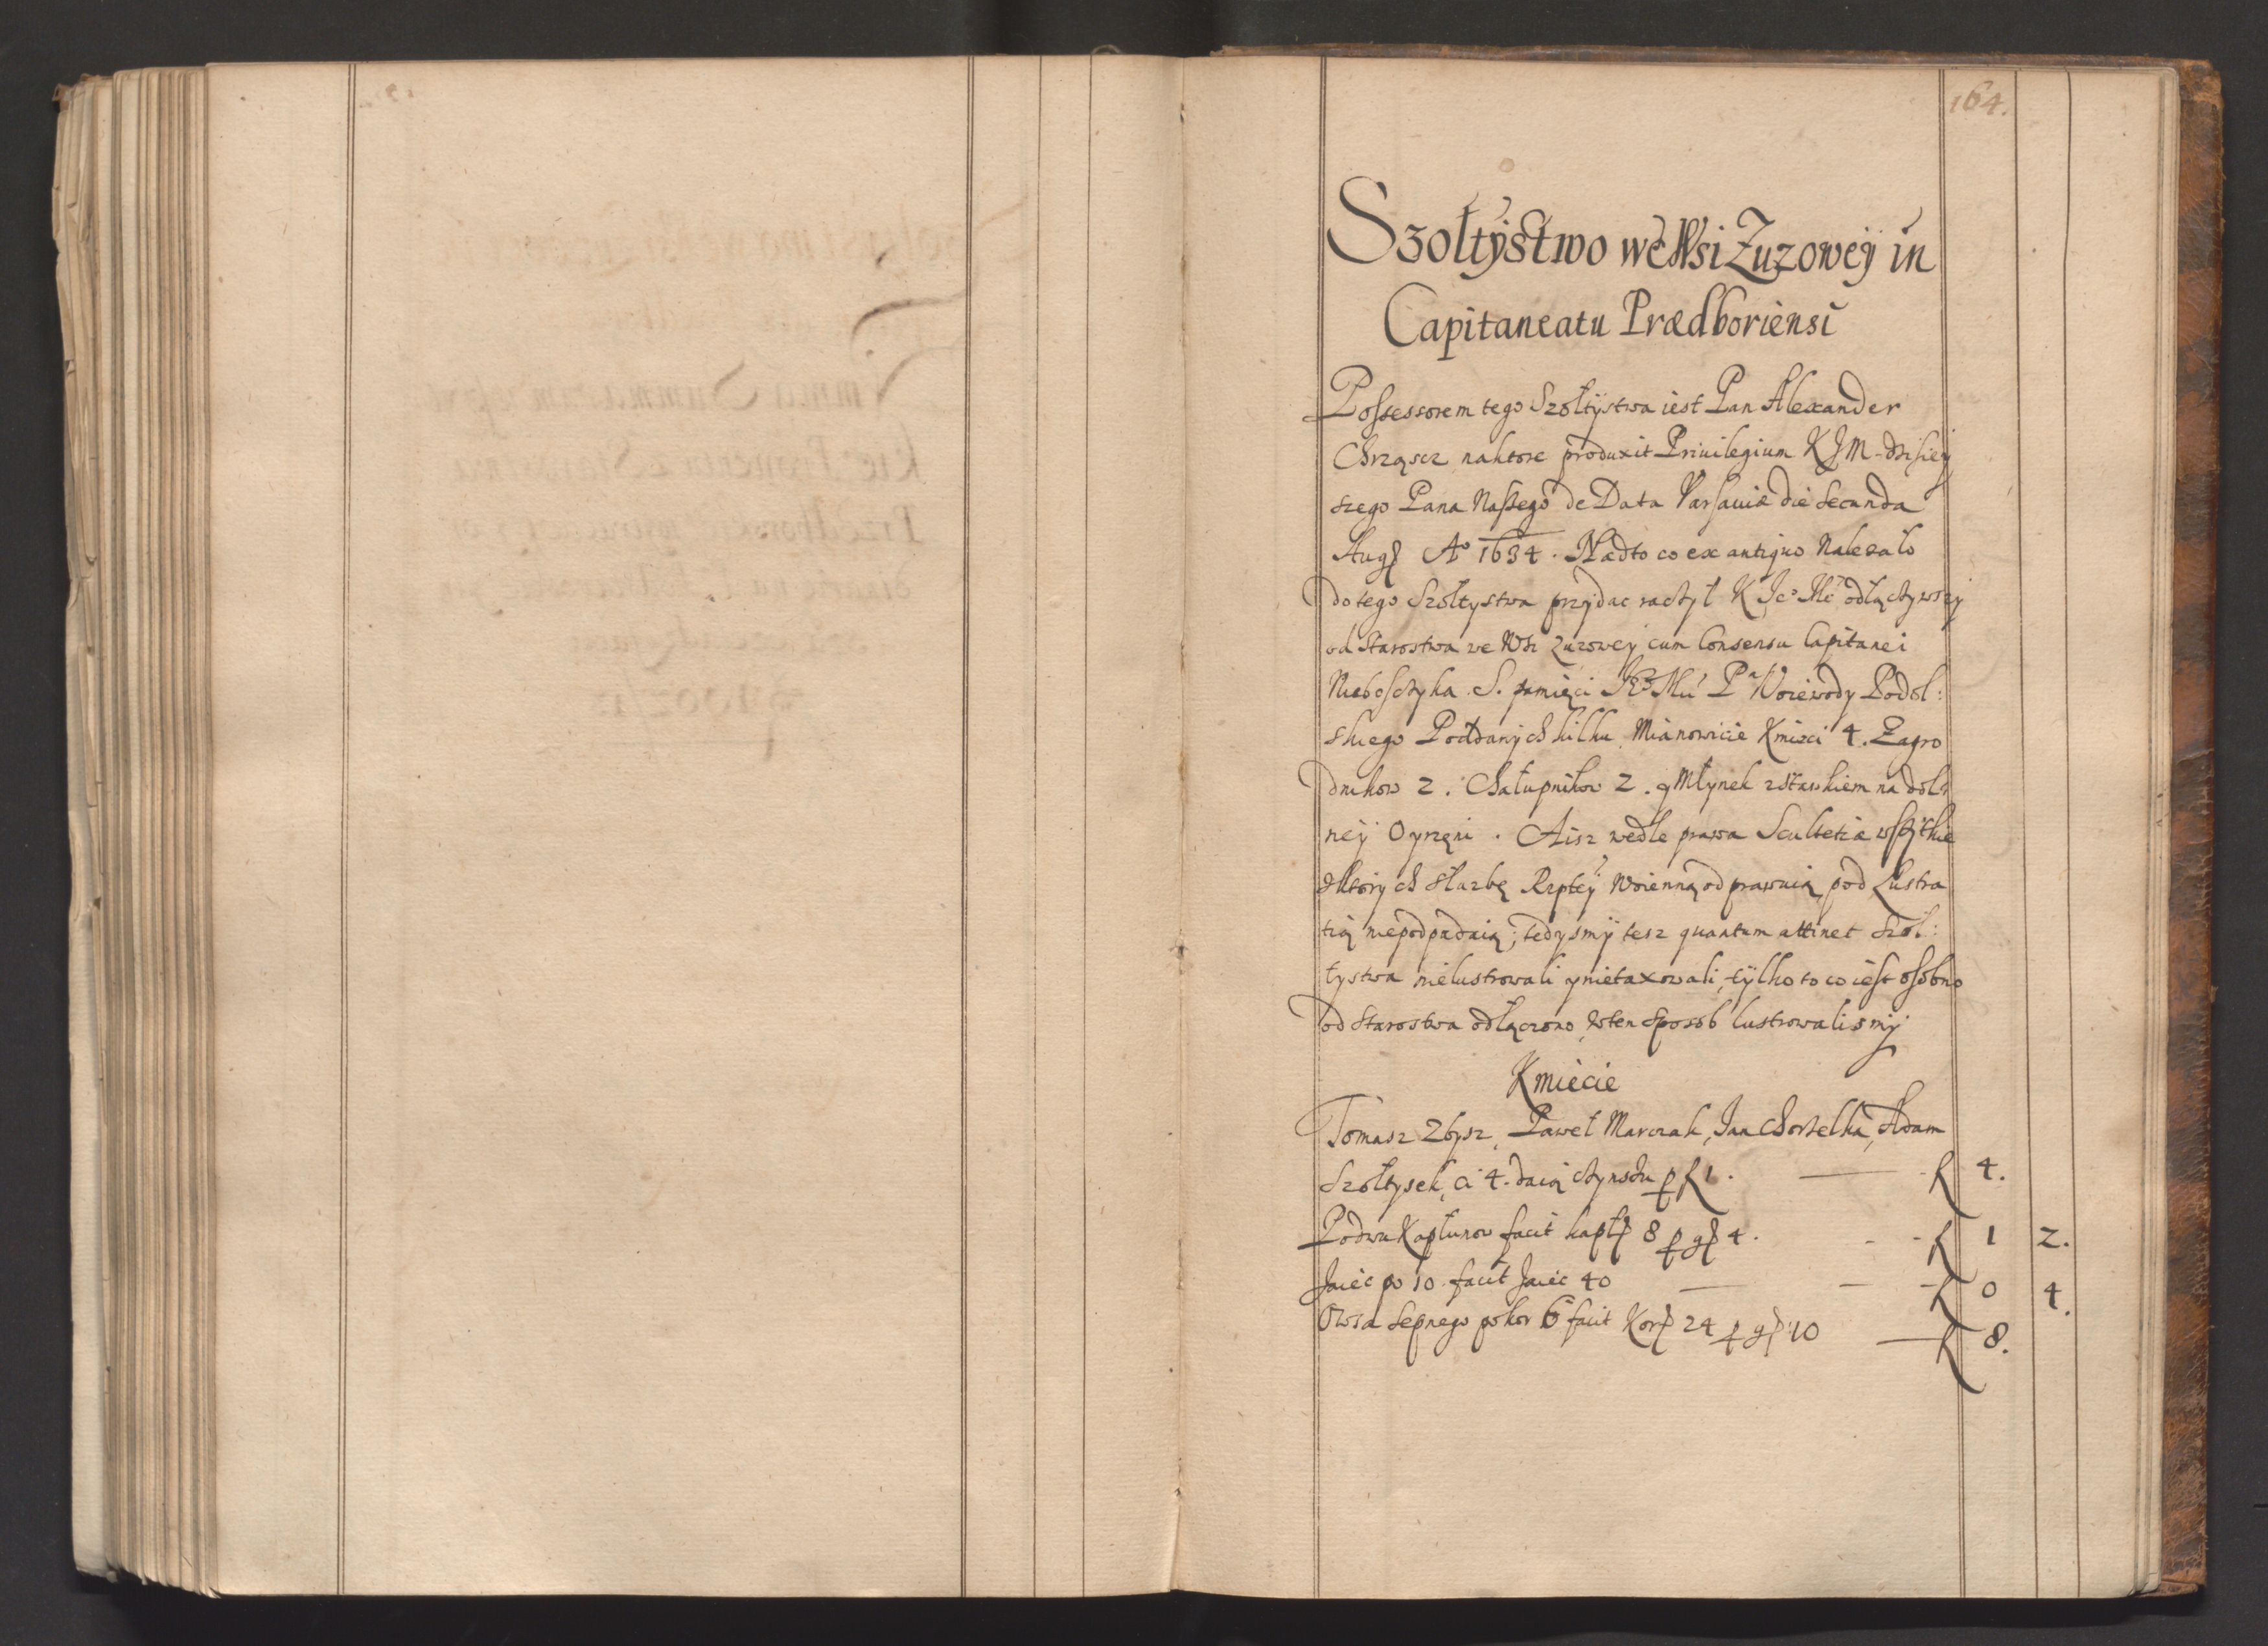 164.
Szołtÿstwo we Wsi Zuzoweÿ in
Capitaneatu Prædboriensi
Possessorem tego Szołtÿstwa iest Pan Alexander
Chrząscz naktore produxit Priuilegium KJM dzisiey
szego Pana Naszego de Data Varsauiæ die Secunda
Aug A° 1634. Nadto co ex antiquo Nalezało
do tego Szołtystwa przÿdac raczÿł K Je° Mć odłączywszy
od Starostwa we Wsi Zuzowey cum Consensu Capitanei
Nieboszczyka S. pamięci JE° Mći Pa Woiewody Podol:
skiego Poddanÿch kilku, Mianowicie Kmieci 4. Zagro
dnikow 2. Chałupnikow 2. y Młynek zStawkiem na dol
neÿ . Aisz wedle prawa Scultetiæ wszÿtkie
zktorÿch słuzbę Rzptey Woienną odprawuią, pod Lustra
tią niepodpadaią; tedysmÿ tesz quantum attinet Szoł:
tystwa nielustrowali ynietaxowali, tÿlko to co iest osobno
od Starostwa odłączono, wten Sposob lustrowalismÿ
Kmiecie
Tomasz Zbysz, Paweł Marczak, Jan Chorzelka, Adam
Szołtysek, Ci 4. daią Czynszu p fl 1. — fl 4.
Podwu Kapłunow facit kapł 8 p g 4. - - fl 1 2.
Jaiec po 10 facit Jaiec 40 — — fl 0 4.
Owsa Sepnego po kor 6 facit Kor 24 p g 10 — fl 8.